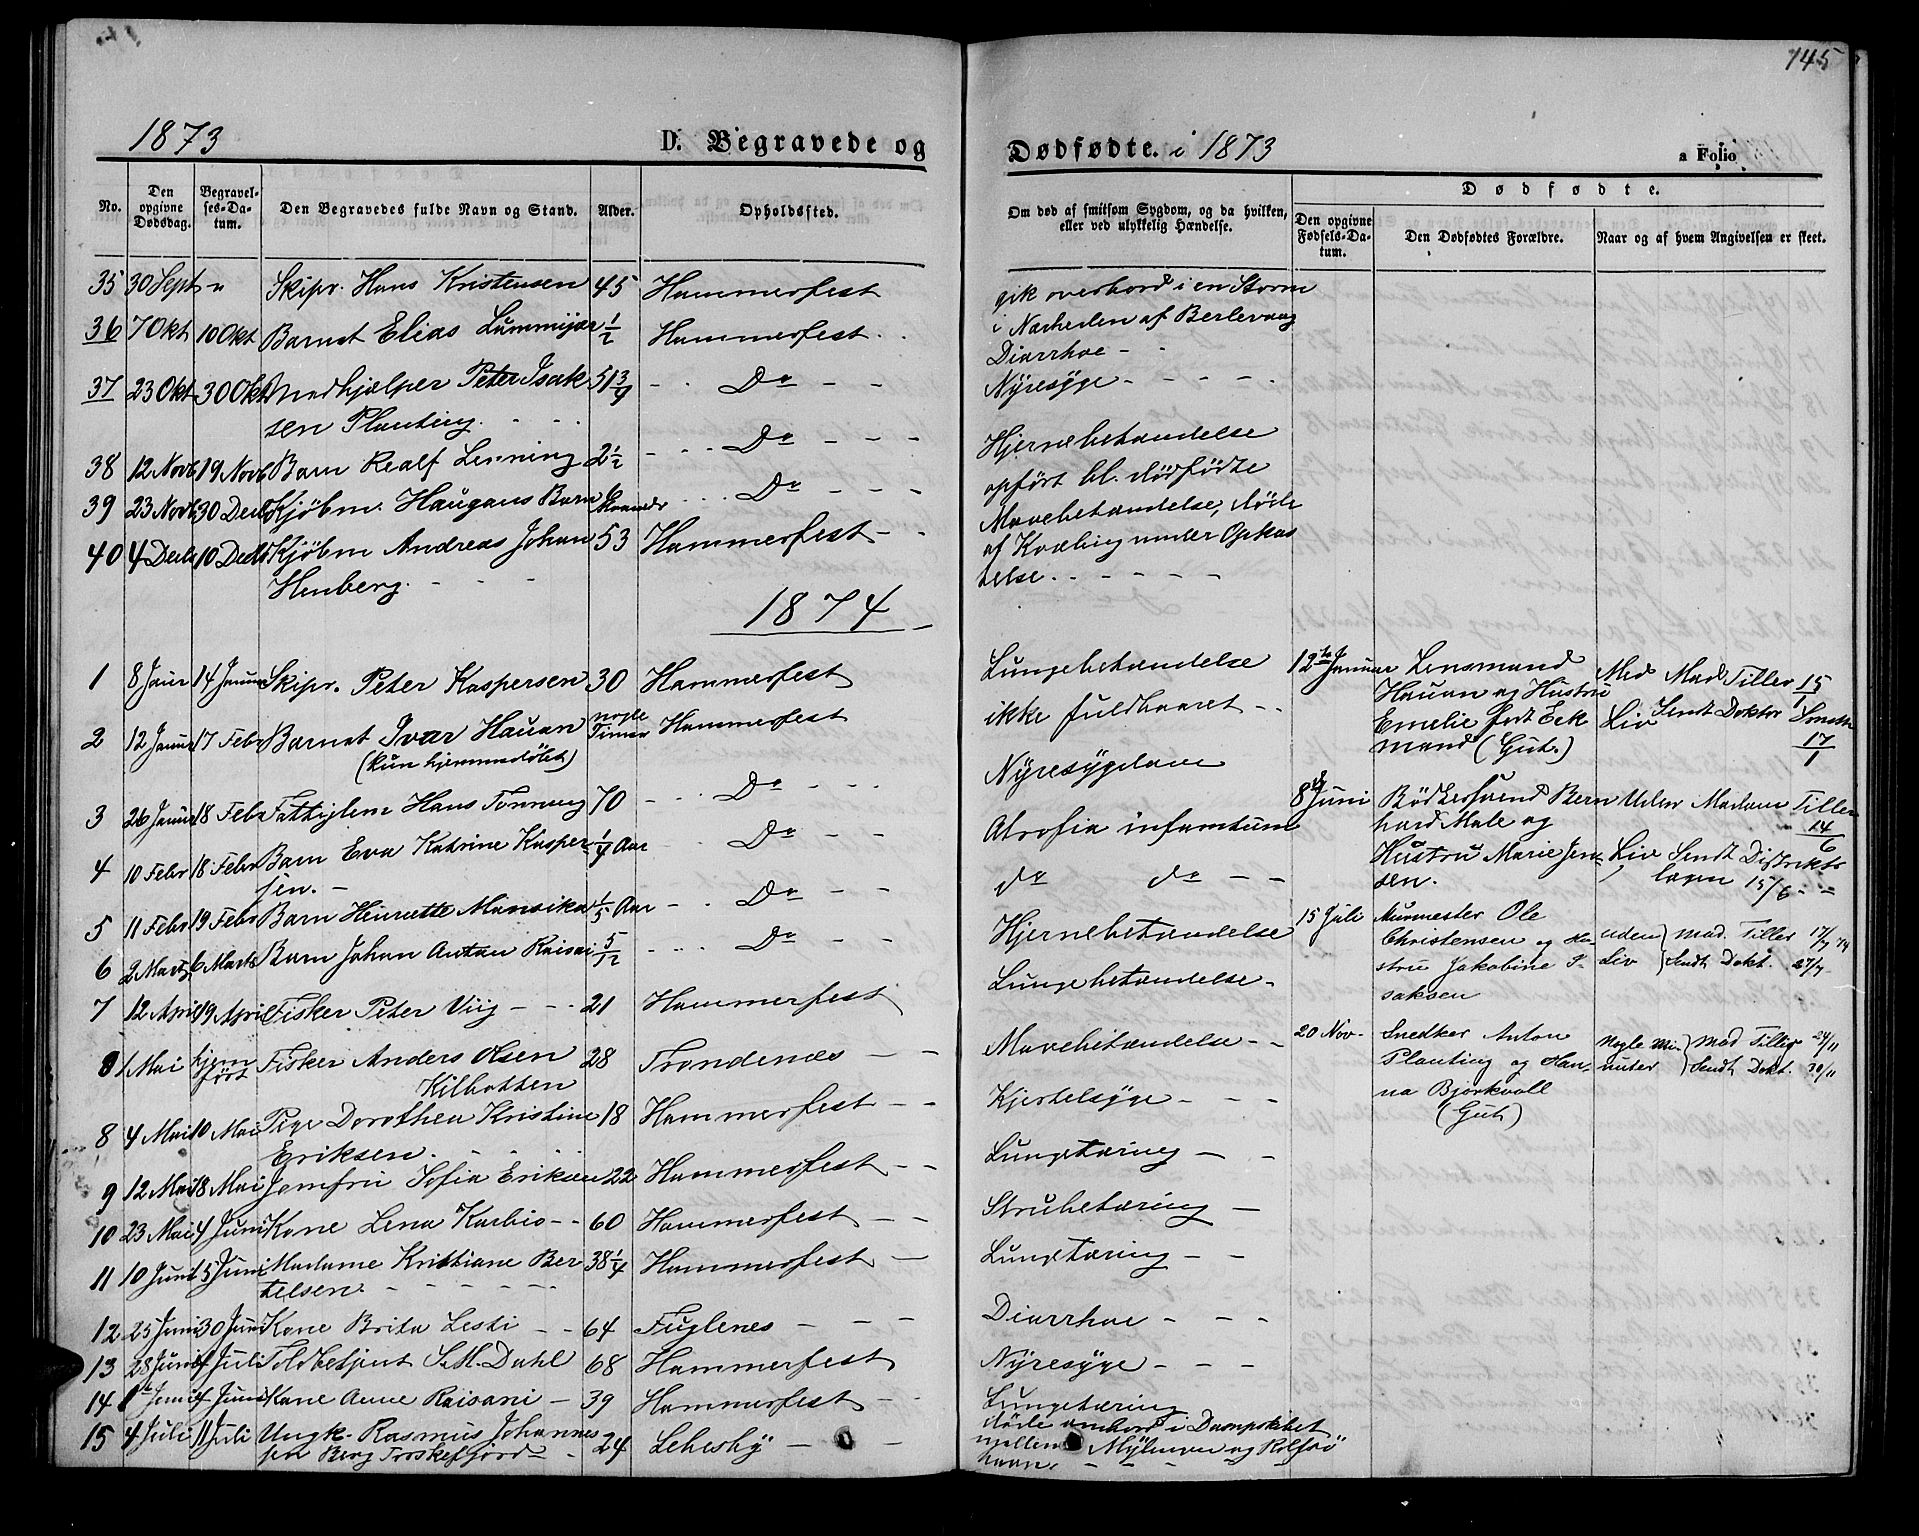 145
1873
D. Begravede og
Dødfødte. i 1873
a Folio
No.
Den opgivne Dødsdag.
Begravelses-Datum.
Den Begravedes fulde Navn og Stand.
Alder.
Opholdssted.
Om død af smitsom Sygdom, og da hvilken, eller ved ulykkelig Hændelse.
Dødfødte.
Den opgivne Fødsels-Datum.
Den Dødfødtes Forældre.
Naar og af hvem Angivelsen er skeet.
35 30 Sept " Skipr. Hans Kristensen 45 Hammerfest
gik overbord i en Storm
i Nærheden af Berlevaag
36 7 Okt 10 Okt Barnet Elias Lummijær 1/2 Hammerfest
Diarrhoe - -
37 23 Okt 30 Okt Medhjælper Peter Isak 51 3/9 - - Do - -
sen Planting. - -
Nyresyge - - - -
38 12 Novb 19 Novb Barn Realf Lenning 2 1/2 - - Do - -
Hjernebetændelse
39 23 Novb 30 Decb Kjøbm. Haugans Barn 6 Maaneder - - Do - -
opført bl. dødfødte
40 4 Decb 10 Decb Kjøbm Andreas Johan 53 Hammerfest - -
Henberg. - - -
Mavebetændelse, døde
af Kvæling under Opkas
telse. - - - -
1874
1 8 Januar 14 Januar Skipr. Peter Kaspersen 30 Hammerfest
Lungebetændelse
2 12 Januar 17 Febr Barnet Ivar Hauan nogle Timer Hammerfest
(kun hjemmedøbt)
ikke fuldbaaret - -
3 26 Januar 18 Febr Fattiglem Hans Tonning 70 - - Do - -
Nyresygdom
4 10 Febr 18 Febr Barn Eva Katrine Kasper 1/4 Aar - - Do - -
sen. -
Atrofia infantum
5 11 Febr 19 Febr Barn Henriette Munsika 1/5 Aar - - Do - -
do do - -
6 2 Marts 6 Marts Barn Johan Antan Raisai 5/12 - - Do - -
Hjernebetændelse
7 12 April 19 April Fisker Peter Viig - - - 21 Hammerfest
Lungebetændelse -
8 1 Mai hjemført Fisker Anders Olsen 28 Trondenæs - -
Kilbotten
Mavebetændelse - -
8 4 Mai 10 Mai Pige Dorothea Kristine 18 Hammerfest - -
Eriksen. - - -
Kjertelsyge - - -
9 12 Mai 18 Mai Jomfru Sofia Eriksen 22 Hammerfest - -
Lungetæring - -
10 23 Mai 4 Juni Kone Lena Karbio - - 60 Hammerfest - -
Strubetæring -
11 10 Juni 15 Juni Madame Kristiane Ber 38 1/4 Hammerfest -
telsen. - - - - - -
Lungetæring - -
12 25 Juni 30 Juni Kone Brita Lesti - - 64 Fuglenes - - -
Diarrhoe - - -
13 28 Juni 4 Juli Toldbetjent S. M. Dahl 68 Hammerfest
Nyresyge - - -
14 1 Juni 4 Juni Kone Anne Raisani - 39 Hammerfest - -
Lungetæring
15 4 Juli 11 Juli Ungk. Rasmus Johannes
sen Berg Torskefjord - 24 Lebesby - - -
døde ombord i Dampskibet
mellem Mylingen og Rolfsø
havn. - - - -
12te Januar Lensmand
Hauan og Hustru
Emelie født Eck
mand (Gut.)
Med Mad Tiller 15/1
Liv Sendt Doktor 17/1
8de Juni Bødkersvend Bern
hard Male og
Hustru Marie Jen-
sen.
Uden Madam Tiller 14/6
Liv Sendt Distrikts
lægen 15/6 - -
15 Juli Murmester Ole
Christensen og Hu-
stru Jakobine I-
saksen
uden Mad. Tiller 17/7 74
Liv Sendt Dokt. 27/7
20 Nov. Snedker Anton
Planting og Han-
na Bjorkvoll
(Gut)
Nogle Mi- Mad Tiller 24/11
nuter Sendt Dokt. 30/11